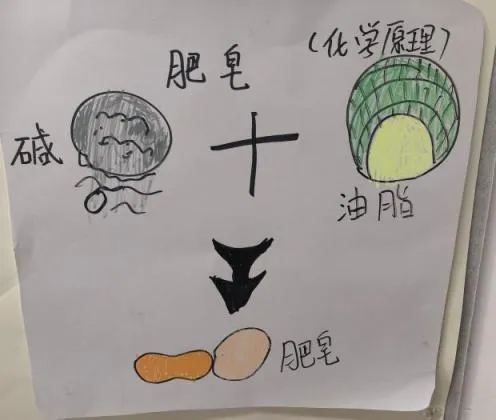 肥皂
(化学原理)
碱
油脂
肥皂